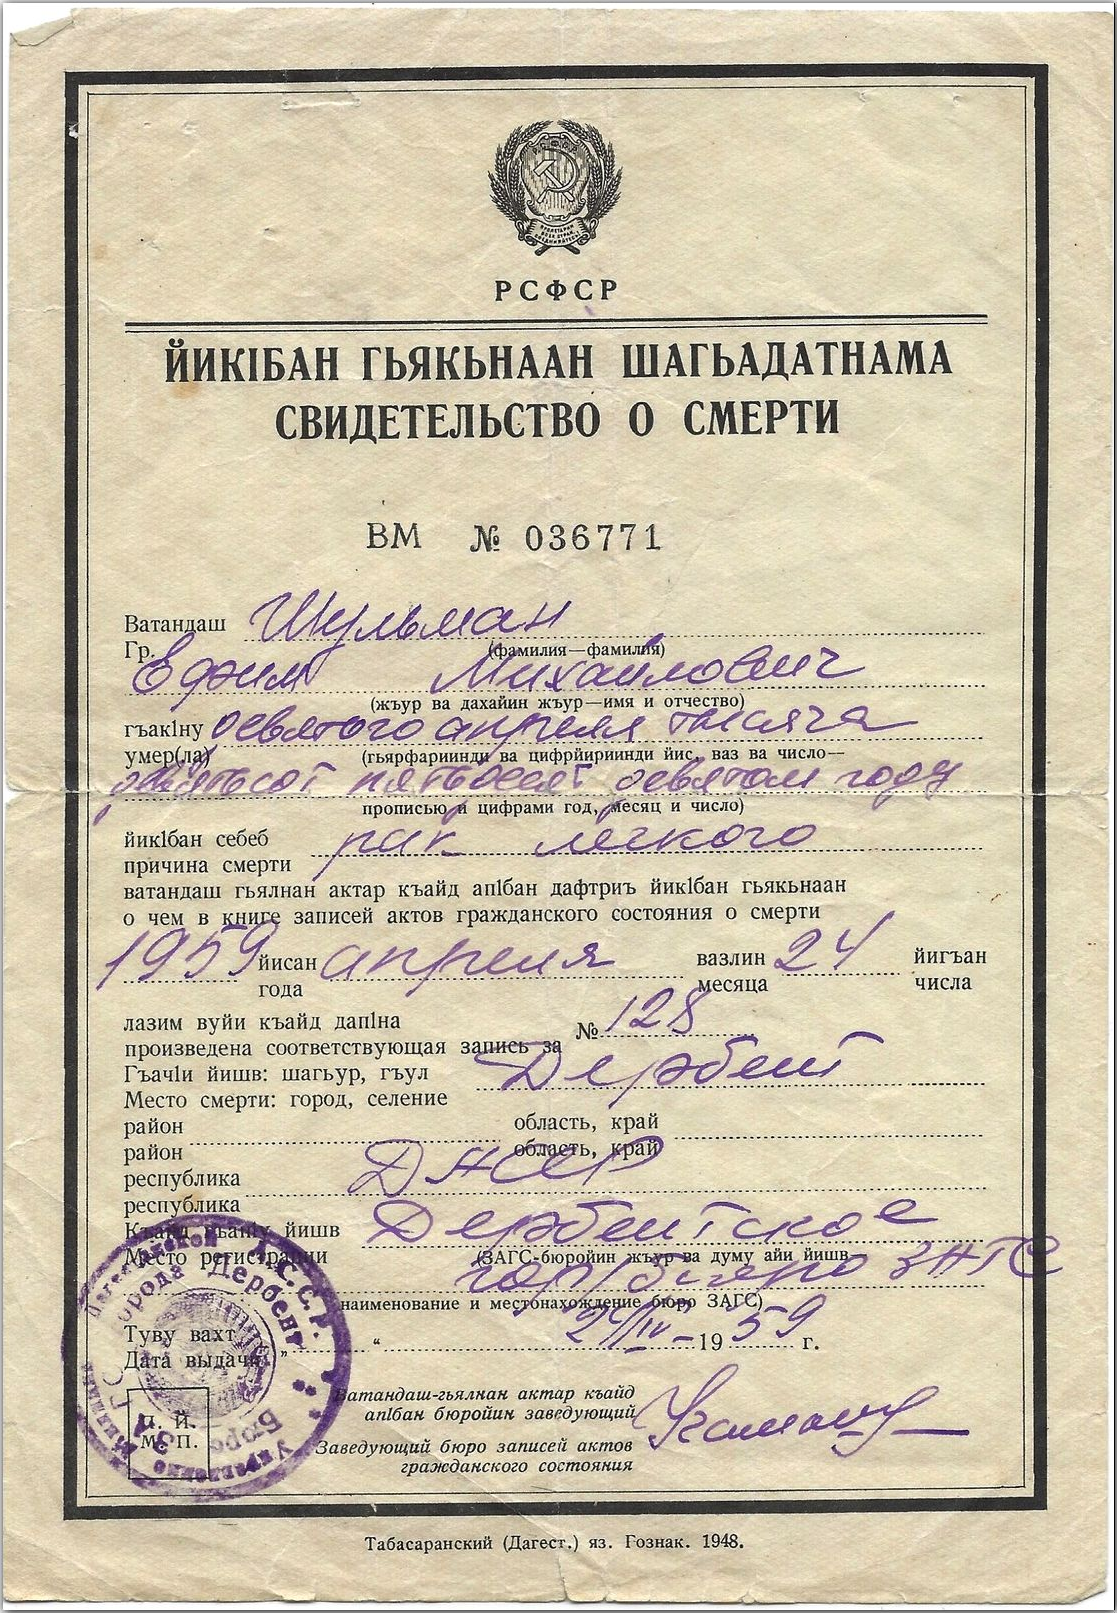 РСФСР
ЙИКІБАН ГЬЯКЬНААН ШАГЬАДАТНАМА
СВИДЕТЕЛЬСТВО О СМЕРТИ
ВМ № 036771
Ватандаш Шульман
Гр. (фамилия—фамилия)
Ефим Михайлович
(жъур ва дахайин жъур—имя и отчество)
гъакІну девятого апреля тысяча
умер(ла) (гьярфариинди ва цифрйириинди йис, ваз ва число—
девятьсот пятьдесят девятом году
прописью и цифрами год, месяц и число)
йикІбан себеб рак легкого
причина смерти
ватандаш гьялнан актар къайд апІбан дафтриъ йикІбан гьякьнаан
о чем в книге записей актов гражданского состояния о смерти
1959 йисан апреля вазлин 24 йигъан
года месяца числа
лазим вуйи къайд дапІна № 128
произведена соответствующая запись за
ГъачІи йишв: шагьур, гъул Дербент
Место смерти: город, селение
район область, край
район область, край
республика ДАССР
республика
Къайд гъашу йишв Дербентское
Место регистрации (ЗАГС-бюройин жъур ва думу айи йишв—
гор/бюро ЗАГС
наименование и местонахождение бюро ЗАГС)
Туву вахт 24/IV–1959 г.
Дата выдачи " "
Ватандаш-гьялнан актар къайд
апІбан бюройин заведующий
Заведующий бюро записей актов
гражданского состояния
П. Й.
М. П.
города Дербент
Бюро
Табасаранский (Дагест.) яз. Гознак. 1948.